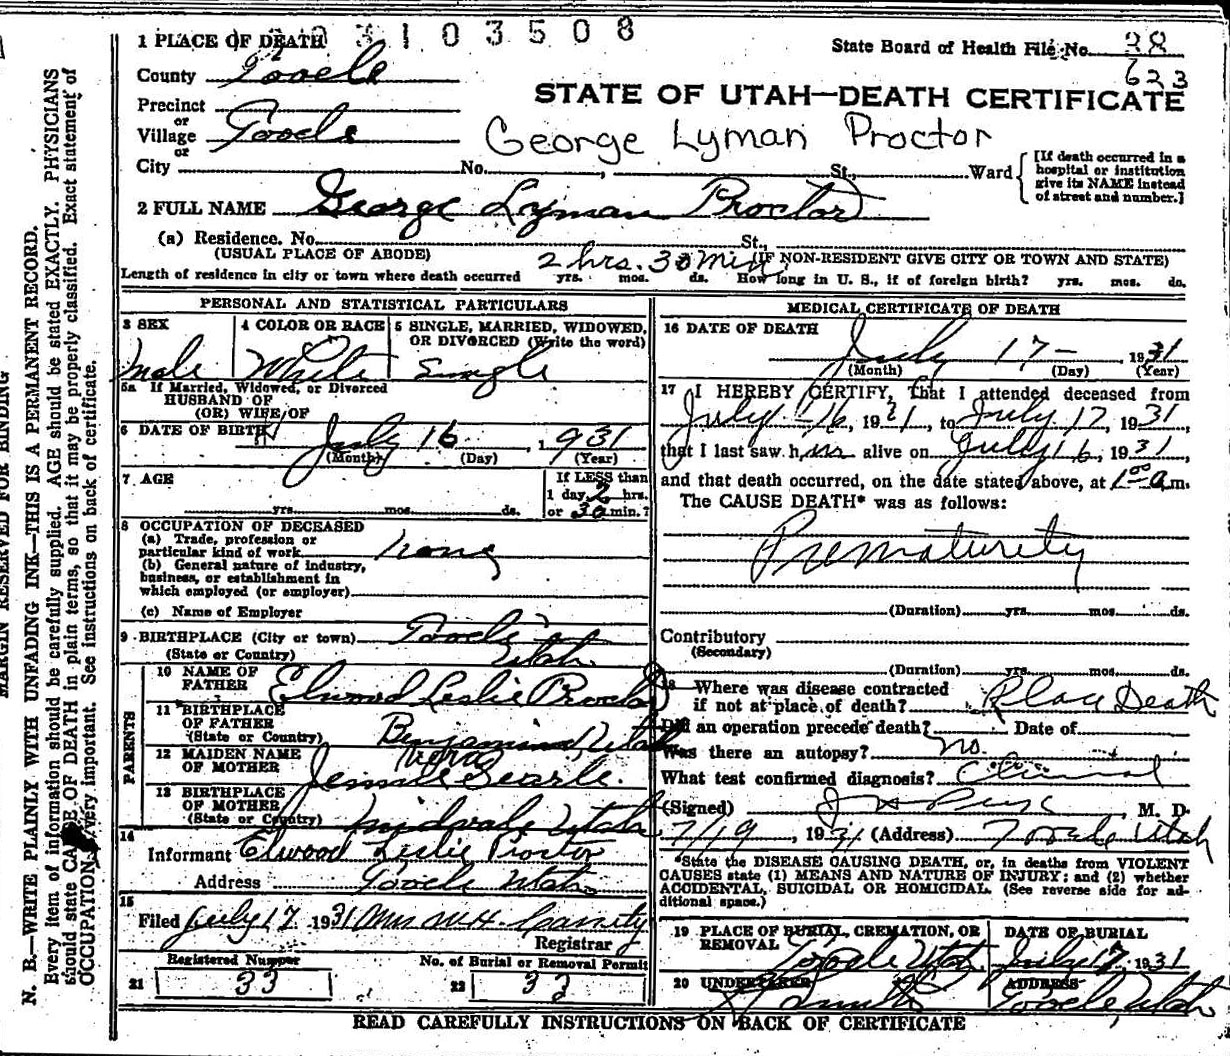 3103508
1 PLACE OF DEATH
State Board of Health File No. 28
623
County Tooele
STATE OF UTAH—DEATH CERTIFICATE
Precinct
or
Village Tooele
or
George Lyman Proctor
City No. St., Ward [If death occurred in a hospital or institution give its NAME instead of street and number.]
2 FULL NAME George Lyman Proctor
(a) Residence. No. St.,
(USUAL PLACE OF ABODE) (IF NON-RESIDENT GIVE CITY OR TOWN AND STATE)
Length of residence in city or town where death occurred 2 hrs. 30 Min. yrs. mos. ds. How long in U. S., if of foreign birth? yrs. mos. ds.
PERSONAL AND STATISTICAL PARTICULARS
3 SEX Male
4 COLOR OR RACE White
5 SINGLE, MARRIED, WIDOWED, OR DIVORCED (Write the word) Single
5a If Married, Widowed, or Divorced
HUSBAND OF
(OR) WIFE OF
6 DATE OF BIRTH July 16, 1931
(Month) (Day) (Year)
7 AGE yrs. mos. ds.
If LESS than
1 day, 2 hrs.
or 30 min.?
8 OCCUPATION OF DECEASED
(a) Trade, profession or
particular kind of work none
(b) General nature of industry,
business, or establishment in
which employed (or employer)
(c) Name of Employer
9 BIRTHPLACE (City or town) Tooele
(State or Country) Utah.
PARENTS
10 NAME OF
FATHER Elwood Leslie Proctor
11 BIRTHPLACE
OF FATHER
(State or Country) Benjamin, Utah
12 MAIDEN NAME
OF MOTHER Jennie Vera Searle.
13 BIRTHPLACE
OF MOTHER
(State or Country) Midvale Utah
14
Informant Elwood Leslie Proctor
Address Tooele Utah.
15
Filed July 17 1931 Mrs M.H.
Registrar
Registered Number
21 33
No. of Burial or Removal Permit
22 32
MEDICAL CERTIFICATE OF DEATH
16 DATE OF DEATH
July 17 - , 1931
(Month) (Day) (Year)
17 I HEREBY CERTIFY, That I attended deceased from
July 16, 1931, to July 17, 1931,
that I last saw him alive on July 16, 1931,
and that death occurred, on the date stated above, at 1 00 a m.
The CAUSE DEATH* was as follows:
Prematurity
(Duration) yrs. mos. ds.
Contributory
(Secondary)
(Duration) yrs. mos. ds.
18 Where was disease contracted
if not at place of death? Place Death
Did an operation precede death? Date of
Was there an autopsy? no.
What test confirmed diagnosis? Clinical
(Signed) , M. D.
7/19, 1931 (Address) Tooele Utah
*State the DISEASE CAUSING DEATH, or, in deaths from VIOLENT
CAUSES state (1) MEANS AND NATURE OF INJURY; and (2) whether
ACCIDENTAL, SUICIDAL OR HOMICIDAL. (See reverse side for ad-
ditional space.)
19 PLACE OF BURIAL, CREMATION, OR
REMOVAL Tooele Utah.
DATE OF BURIAL
July 17, 1931
20 UNDERTAKER
ADDRESS
Tooele, Utah
READ CAREFULLY INSTRUCTIONS ON BACK OF CERTIFICATE
MARGIN RESERVED FOR BINDING
N. B.—WRITE PLAINLY WITH UNFADING INK—THIS IS A PERMANENT RECORD.
Every item of information should be carefully supplied. AGE should be stated EXACTLY. PHYSICIANS
should state CAUSE OF DEATH in plain terms, so that it may be properly classified. Exact statement of
OCCUPATION is very important. See instructions on back of certificate.